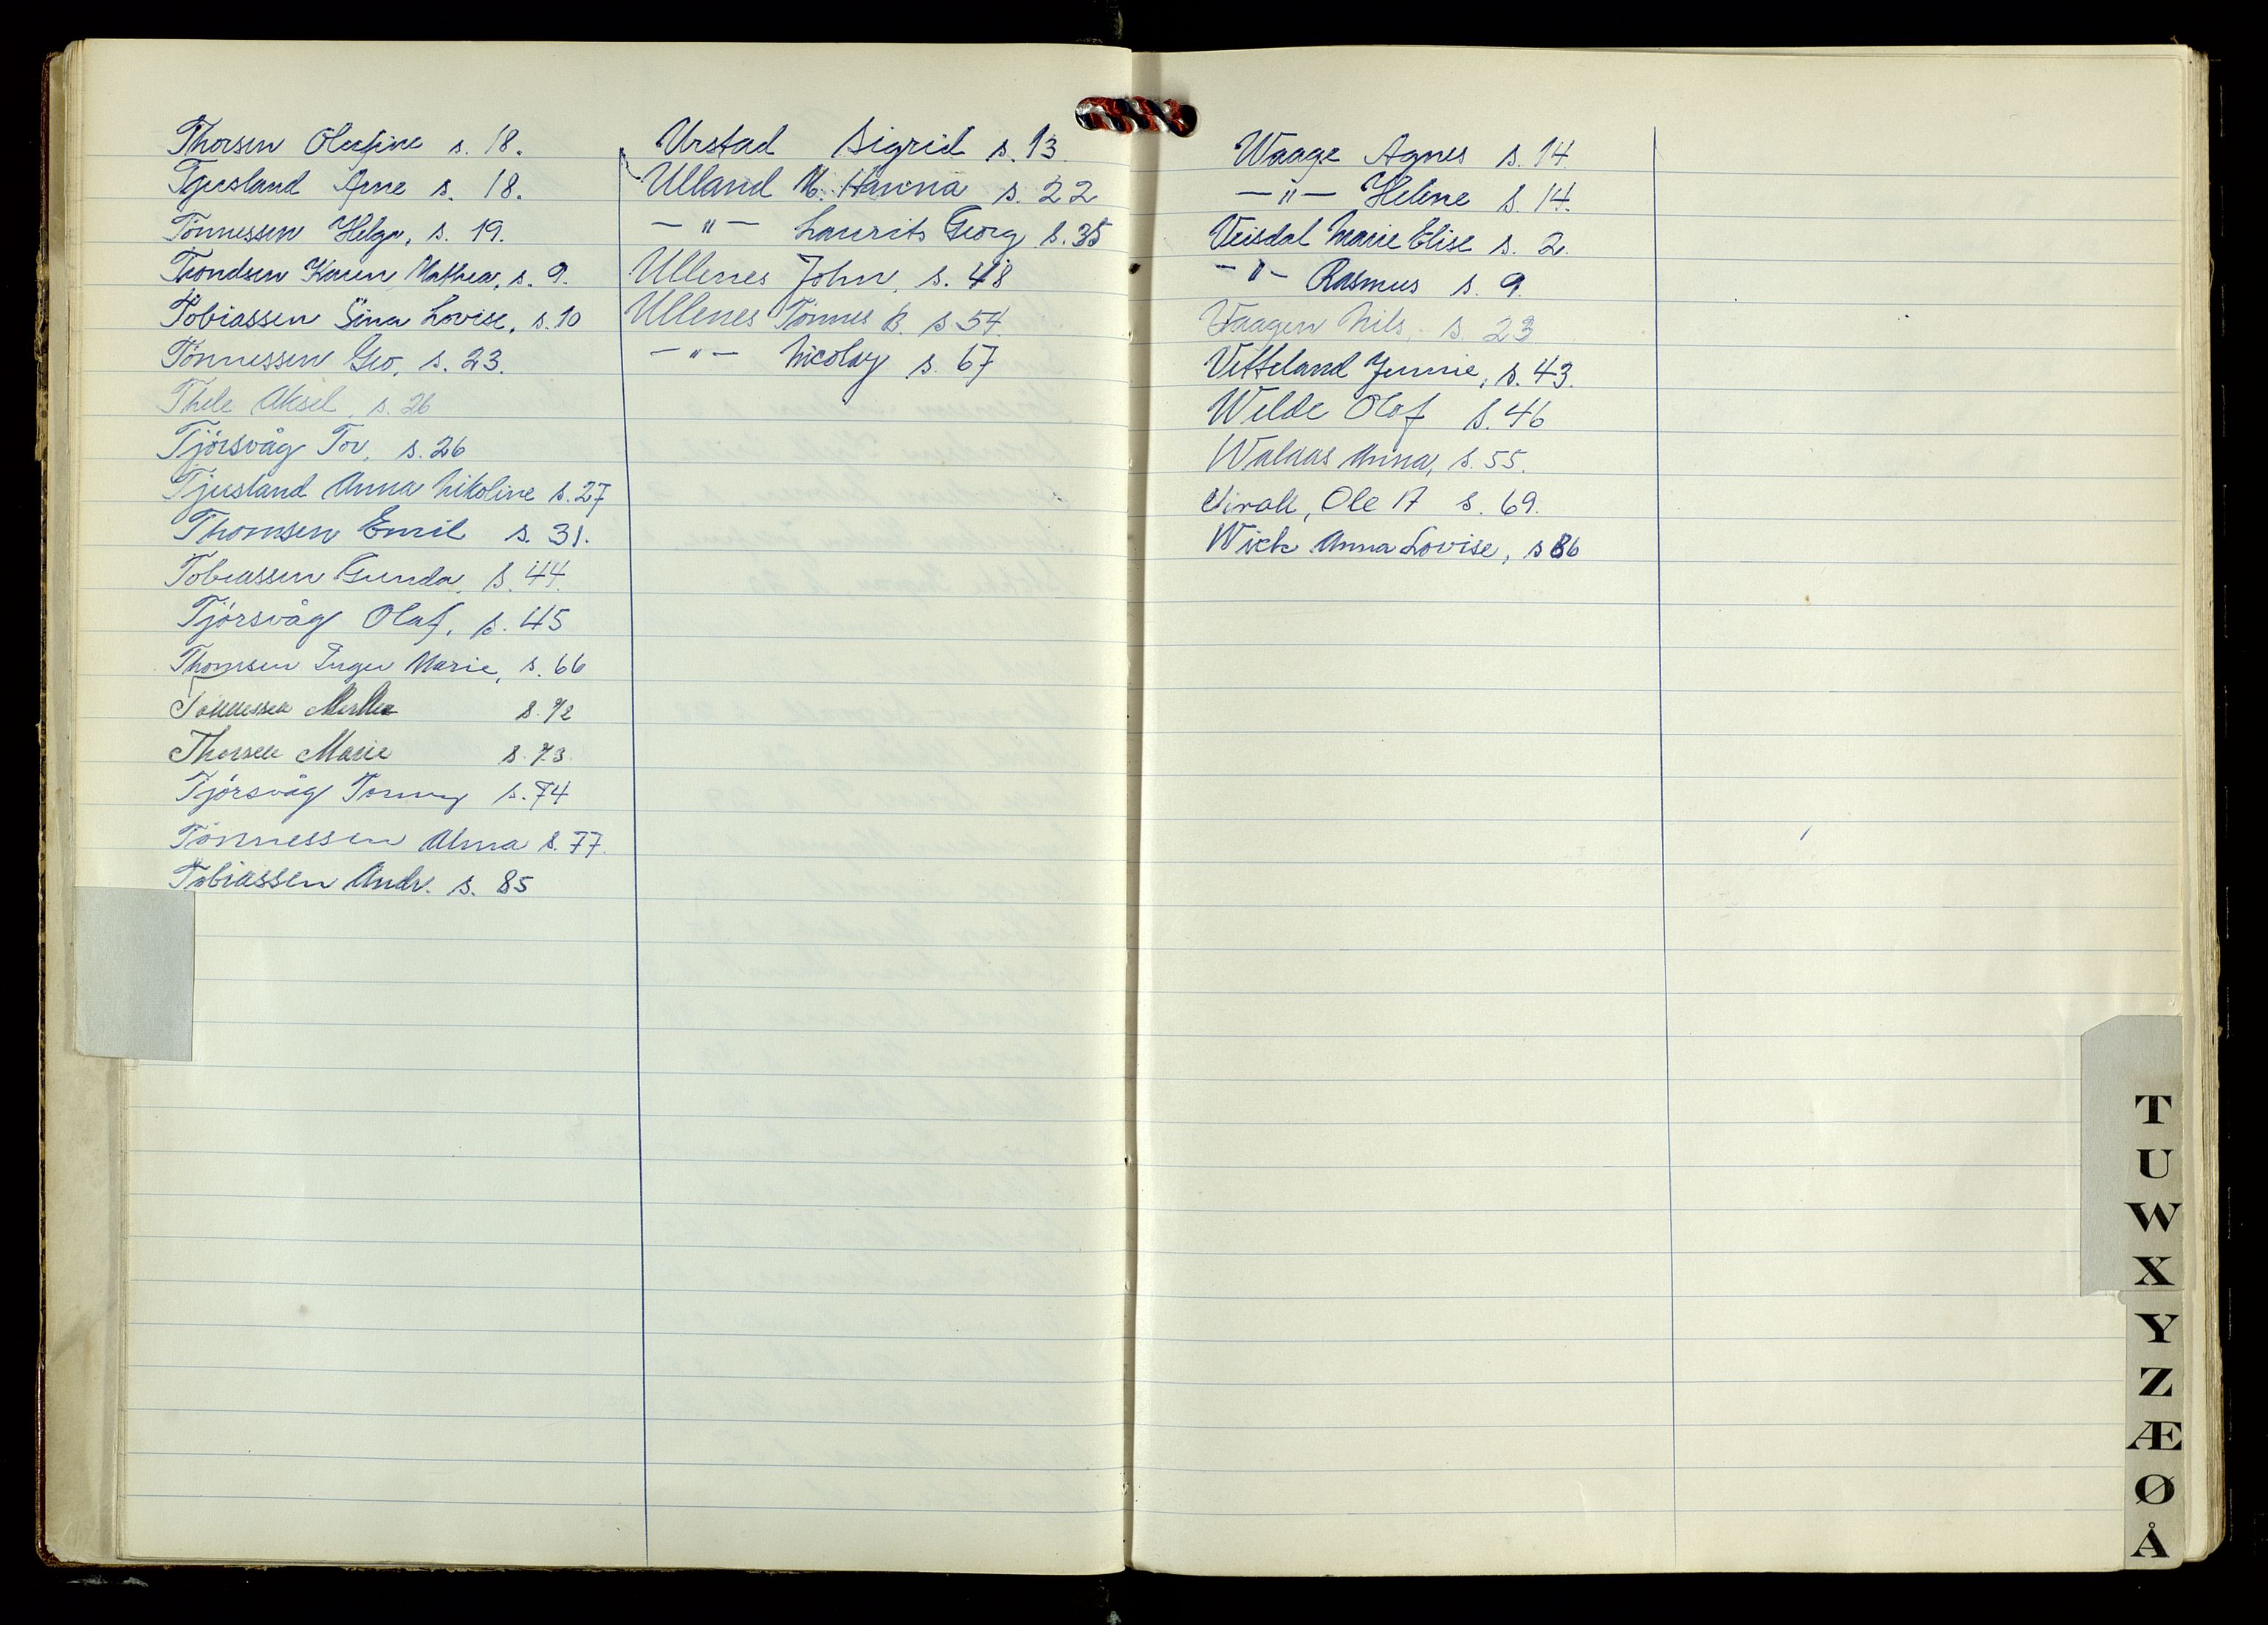 Thorsen Olufine s. 18.
Tjersland Arne s. 18.
Tönnessen Helga, s. 19.
Trondsen Karen Mathea, s. 9.
Tobiassen Sina Lovise, s. 10
Tönnessen Geo. s. 23.
Thele Aksel, s. 26
Tjörsvåg Tov, s. 26
Tjusland Anna Nikoline s. 27
Thomsen Emil s. 31.
Tobiassen Gunda, s. 44.
Tjörsvåg Olaf, s. 45
Thomsen Inger Marie, s. 66
Tönnessen s. 72
Thorsen Marie s. 73
Tjörsvåg Tonny s. 74
Tönnessen Alma s. 77.
Tobiassen Andr. s. 85
Urstad Sigrid s. 13
Ulland M. Hanna s. 22
— " — Laurits Georg s. 35
Ullenes John, s. 48
Ullenes Tönnes B. s 54
— " — Nicolay s. 67
Waage Agnes s. 14
— " — Helene s. 14.
Veisdal Marie Elise s. 2.
— " — Rasmus s. 9.
Waagen Nils, s. 23
Vetteland Jennie, s. 43.
Welde Olaf s. 46
Walaas Anna, s. 55.
Ole A s. 69.
Wick Anna Lovise, s 86
T
U
W
X
Y
Z
Æ
Ø
Å